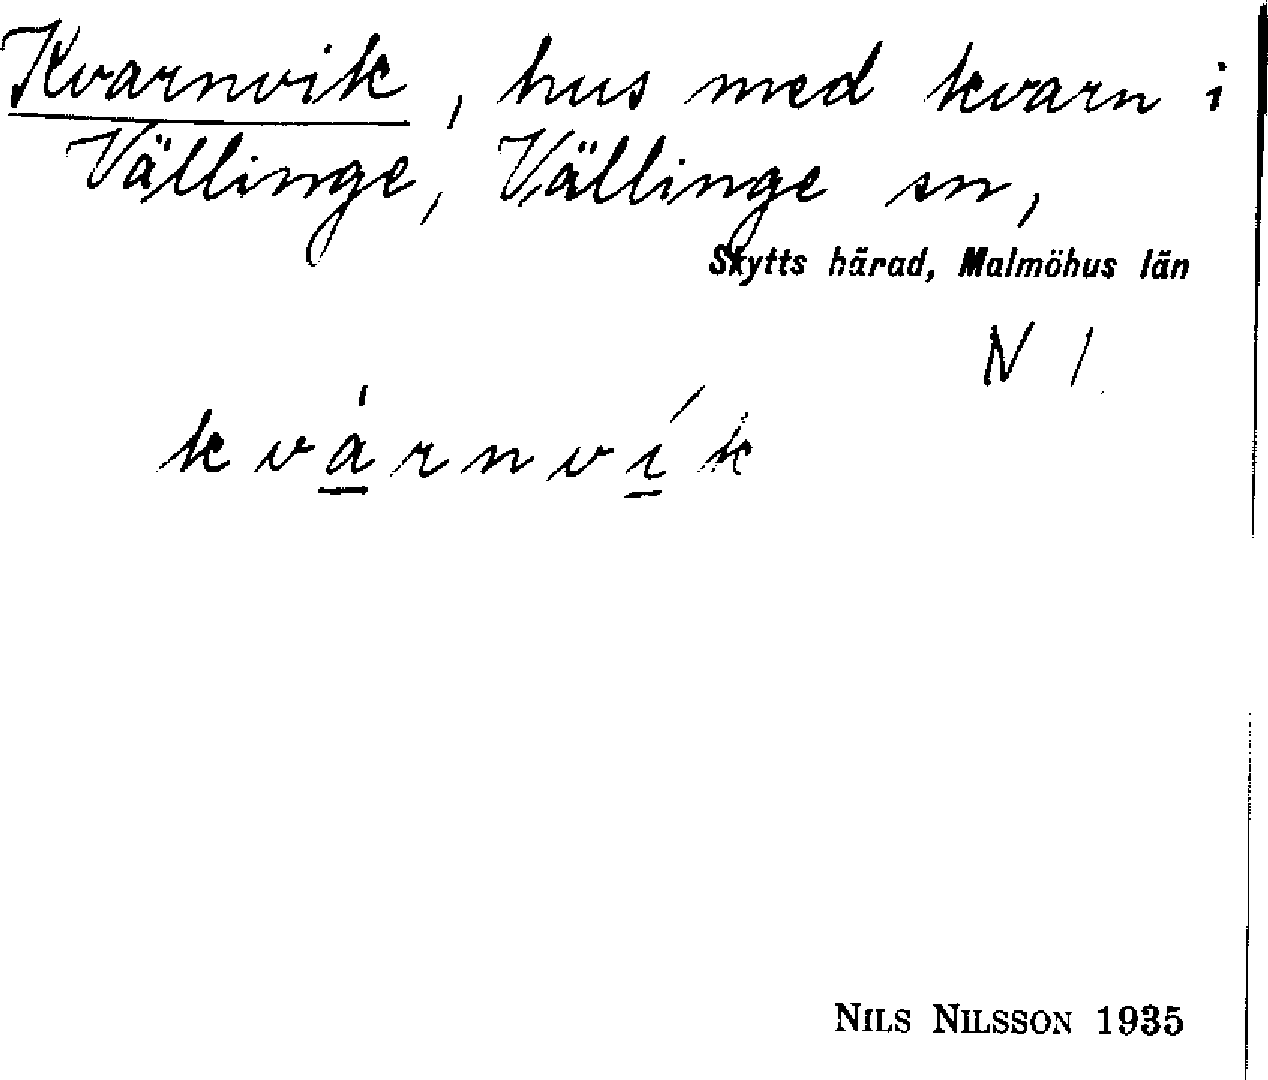 Kvarnvik, hus med kvarn i
Vällinge, Vällinge sn,
Skytts härad, Malmöhus län
N 1
kvárnvík
NILS NILSSON 1935